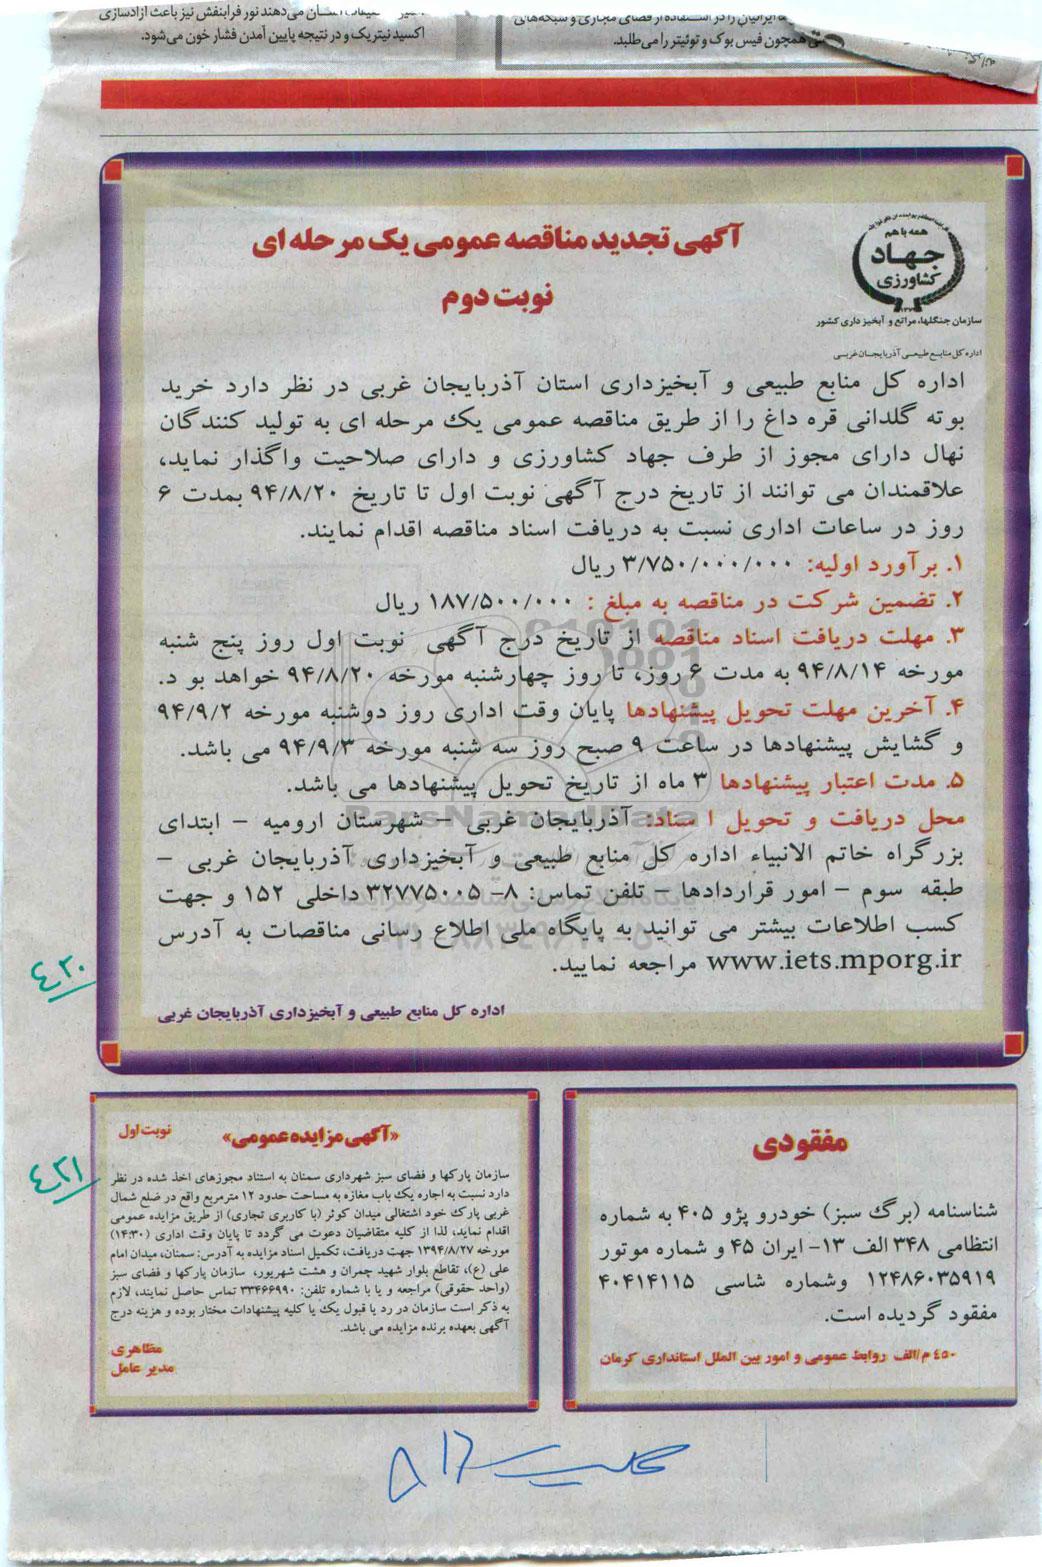 می‌دهند نور فرابنفش نیز باعث ازادسازی
اکسید نیتریک و در نتیجه پایین آمدن فشار خون می‌شود.
همچون فیس بوک و توئیتر را می طلبد.
همه با هم
جهاد
کشاورزی
سازمان جنگلها، مراتع و آبخیزداری کشور
اداره کل منابع طبیعی آذربایجان غربی
آگهی تجدید مناقصه عمومی یک مرحله ای
نوبت دوم
اداره کل منابع طبیعی و آبخیزداری استان آذربایجان غربی در نظر دارد خرید
بوته گلدانی قره داغ را از طریق مناقصه عمومی یک مرحله ای به تولید کنندگان
نهال دارای مجوز از طرف جهاد کشاورزی و دارای صلاحیت واگذار نماید،
علاقمندان می توانند از تاریخ درج آگهی نوبت اول تا تاریخ ۹۴/۸/۲۰ بمدت ۶
روز در ساعات اداری نسبت به دریافت اسناد مناقصه اقدام نمایند.
۱. برآورد اولیه: ۳/۷۵۰/۰۰۰/۰۰۰ ریال
۲. تضمین شرکت در مناقصه به مبلغ : ۱۸۷/۵۰۰/۰۰۰ ریال
۳. مهلت دریافت اسناد مناقصه از تاریخ درج آگهی نوبت اول روز پنج شنبه
مورخه ۹۴/۸/۱۴ به مدت ۶ روز، تا روز چهارشنبه مورخه ۹۴/۸/۲۰ خواهد بو د.
۴. آخرین مهلت تحویل پیشنهادها پایان وقت اداری روز دوشنبه مورخه ۹۴/۹/۲
و گشایش پیشنهادها در ساعت ۹ صبح روز سه شنبه مورخه ۹۴/۹/۳ می باشد.
۵. مدت اعتبار پیشنهادها ۳ ماه از تاریخ تحویل پیشنهادها می باشد.
محل دریافت و تحویل ا سناد: آذربایجان غربی – شهرستان ارومیه – ابتدای
بزرگراه خاتم الانبیاء اداره کل منابع طبیعی و آبخیزداری آذربایجان غربی –
طبقه سوم – امور قراردادها – تلفن تماس: ۸- ۳۲۷۷۵۰۰۵ داخلی ۱۵۲ و جهت
کسب اطلاعات بیشتر می توانید به پایگاه ملی اطلاع رسانی مناقصات به آدرس
www.iets.mporg.ir مراجعه نمایید.
اداره کل منابع طبیعی و آبخیزداری آذربایجان غربی
ParsNamadData
۴۲۰
مفقودی
شناسنامه (برگ سبز) خودرو پژو ۴۰۵ به شماره
انتظامی ۳۴۸ الف ۱۳- ایران ۴۵ و شماره موتور
۱۲۴۸۶۰۳۵۹۱۹ وشماره شاسی ۴۰۴۱۴۱۱۵
مفقود گردیده است.
۴۵۰ م/الف روابط عمومی و امور بین الملل استانداری کرمان
«آگهی مزایده عمومی»
نوبت اول
سازمان پارکها و فضای سبز شهرداری سمنان به استناد مجوزهای اخذ شده در نظر
دارد نسبت به اجاره یک باب مغازه به مساحت حدود ۱۲ مترمربع واقع در ضلع شمال
غربی پارک خود اشتغالی میدان کوثر (با کاربری تجاری) از طریق مزایده عمومی
اقدام نماید، لذا از کلیه متقاضیان دعوت می گردد تا پایان وقت اداری (۱۴:۳۰)
مورخه ۱۳۹۴/۸/۲۷ جهت دریافت، تکمیل اسناد مزایده به آدرس: سمنان، میدان امام
علی (ع)، تقاطع بلوار شهید چمران و هشت شهریور، سازمان پارکها و فضای سبز
(واحد حقوقی) مراجعه و یا با شماره تلفن: ۳۳۴۶۶۹۹۰ تماس حاصل نمایند، لازم
به ذکر است سازمان در رد یا قبول یک یا کلیه پیشنهادات مختار بوده و هزینه درج
آگهی بعهده برنده مزایده می باشد.
مظاهری
مدیر عامل
۴۲۱